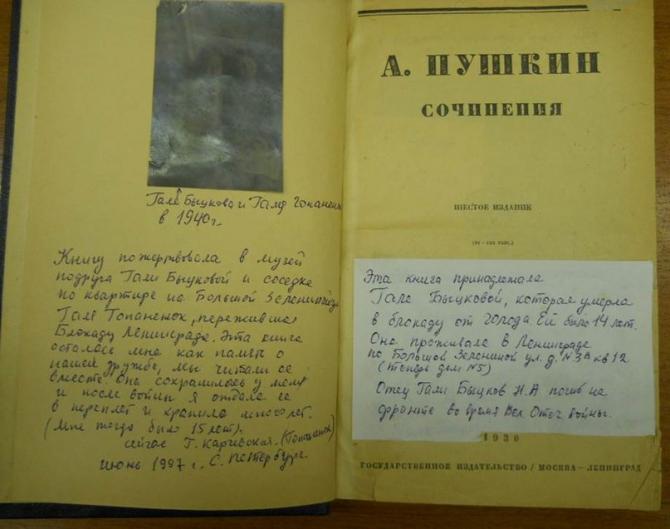 Галя Быцкова и Галя Гопаненок
в 1940 г.
Книгу пожертвовала в музей
подруга Гали Быцковой и соседка
по квартире на Большой Зелениной
Галя Гопаненок, пережившая
Блокаду Ленинграда. Эта книга
осталась мне как память о
нашей дружбе, мы читали ее
вместе. Она сохранилась у меня
и после войны я отдала ее
в переплет и хранила много лет.
(Мне тогда было 15 лет).
сейчас Г. (Гопаненок)
июнь 1997 г. С. Петербург.
А. ПУШКИН
СОЧИНЕНИЯ
ШЕСТОЕ ИЗДАНИЕ
Эта книга принадлежала
Гале Быцковой, которая умерла
в блокаду от голода Ей было 14 лет.
Она проживала в Ленинграде
по Большой Зелениной ул. д. №3А кв 12
(теперь дом №5)
Отец Гали Быцков Н.А погиб на
фронте во время Вел Отеч войны.
1930
ГОСУДАРСТВЕННОЕ ИЗДАТЕЛЬСТВО / МОСКВА – ЛЕНИНГРАД